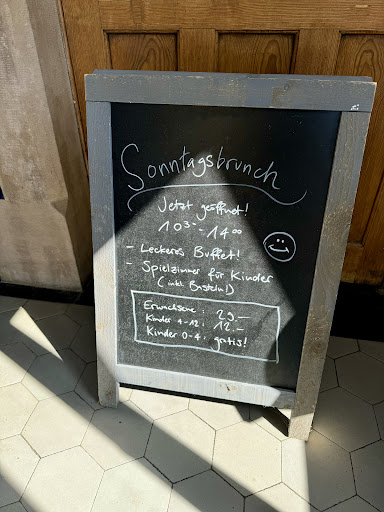 Sonntagsbrunch
Jetzt geöffnet!
10³⁰ - 14⁰⁰
- Leckeres Buffet!
- Spielzimmer für Kinder
(inkl. Basteln!)
Erwachsene : 29.-
Kinder 4-12 : 12.-
Kinder 0-4 : gratis!